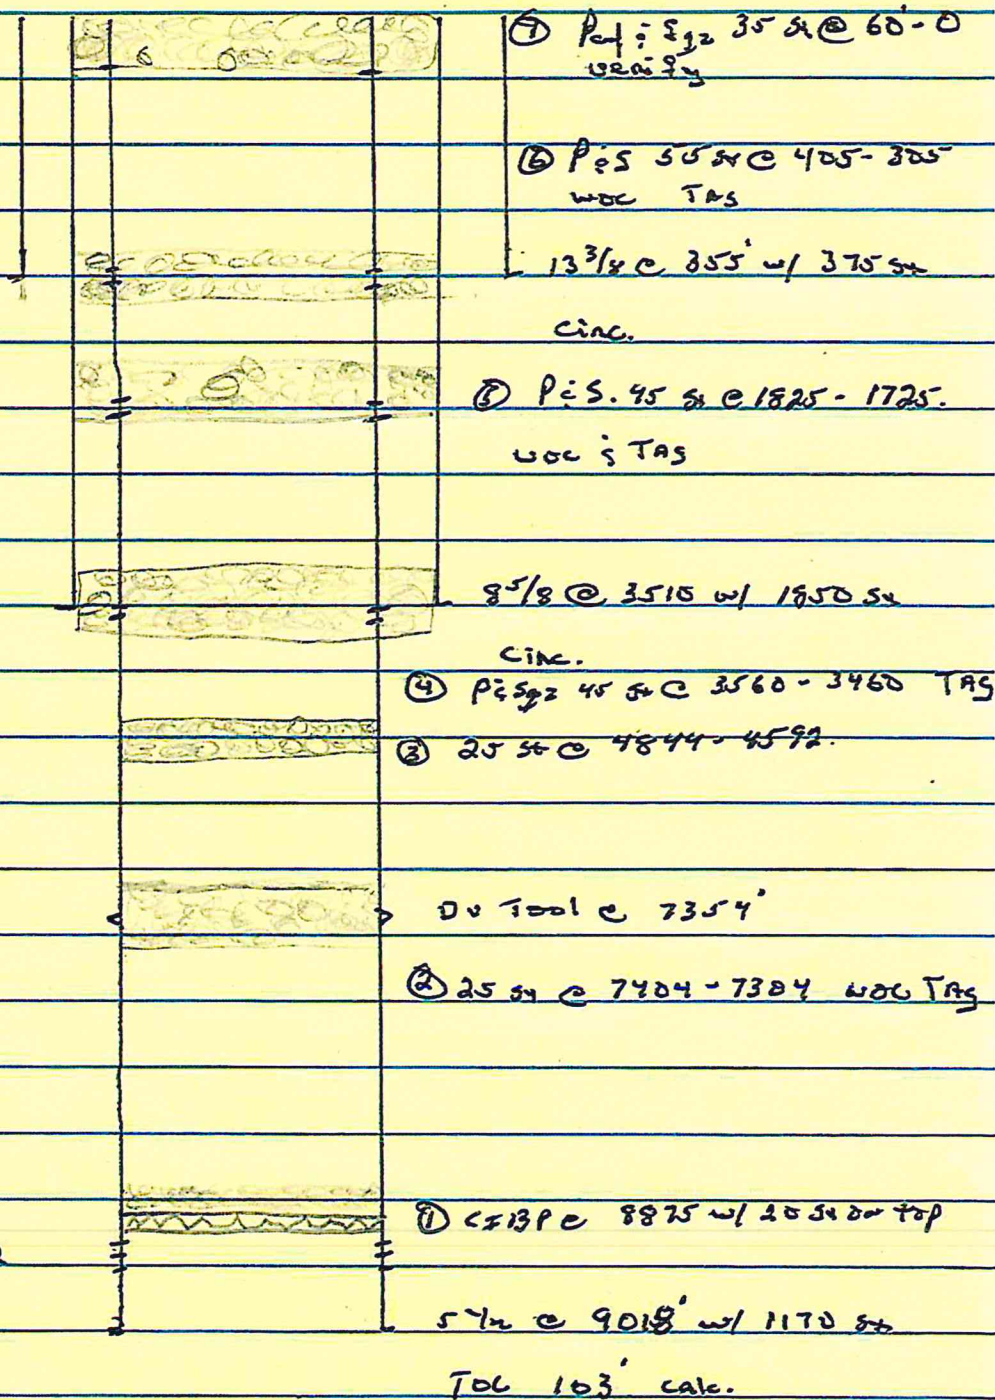 ⑦ Perf & Sqz 35 sx @ 60'-0
verify
⑥ P&S 55 sx @ 405-305
WOC TAG
13 3/8 @ 355' w/ 375 sx
Circ.
⑤ P&S. 45 sx @ 1825-1725.
WOC & TAG
8 5/8 @ 3510 w/ 1850 sx
Circ.
④ P&Sqz 45 sx @ 3560-3460 TAG
③ 25 sx @ 4844-4592.
DV Tool @ 7354'
② 25 sx @ 7404-7304 WOC TAG
① CIBP @ 8875 w/ 20 sx on top
5 1/2 @ 9018' w/ 1170 sx
TOC 103' calc.